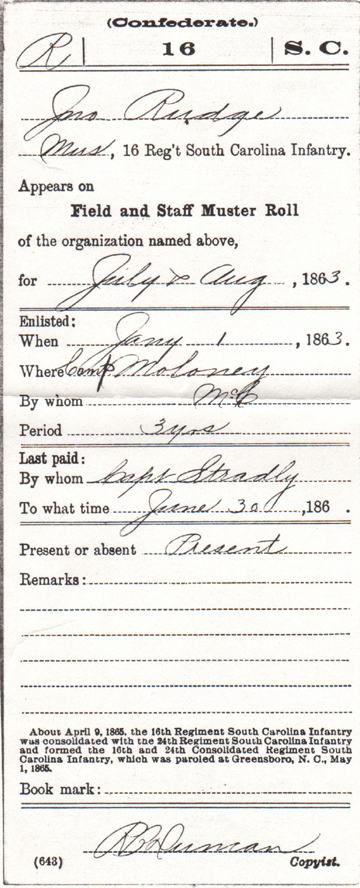 (Confederate.)
R | 16 | S. C.
Jno Rudge
Mus, 16 Reg't South Carolina Infantry.
Appears on
Field and Staff Muster Roll
of the organization named above,
for July & Aug, 1863.
Enlisted:
When Jany 1, 1863.
Where Camp Moloney
By whom
Period 3 yrs
Last paid:
By whom Capt Stradly
To what time June 30, 186 .
Present or absent Present
Remarks:
About April 9, 1865, the 16th Regiment South Carolina Infantry
was consolidated with the 24th Regiment South Carolina Infantry
and formed the 16th and 24th Consolidated Regiment South
Carolina Infantry, which was paroled at Greensboro, N. C., May
1, 1865.
Book mark:
Duman
(643) Copyist.